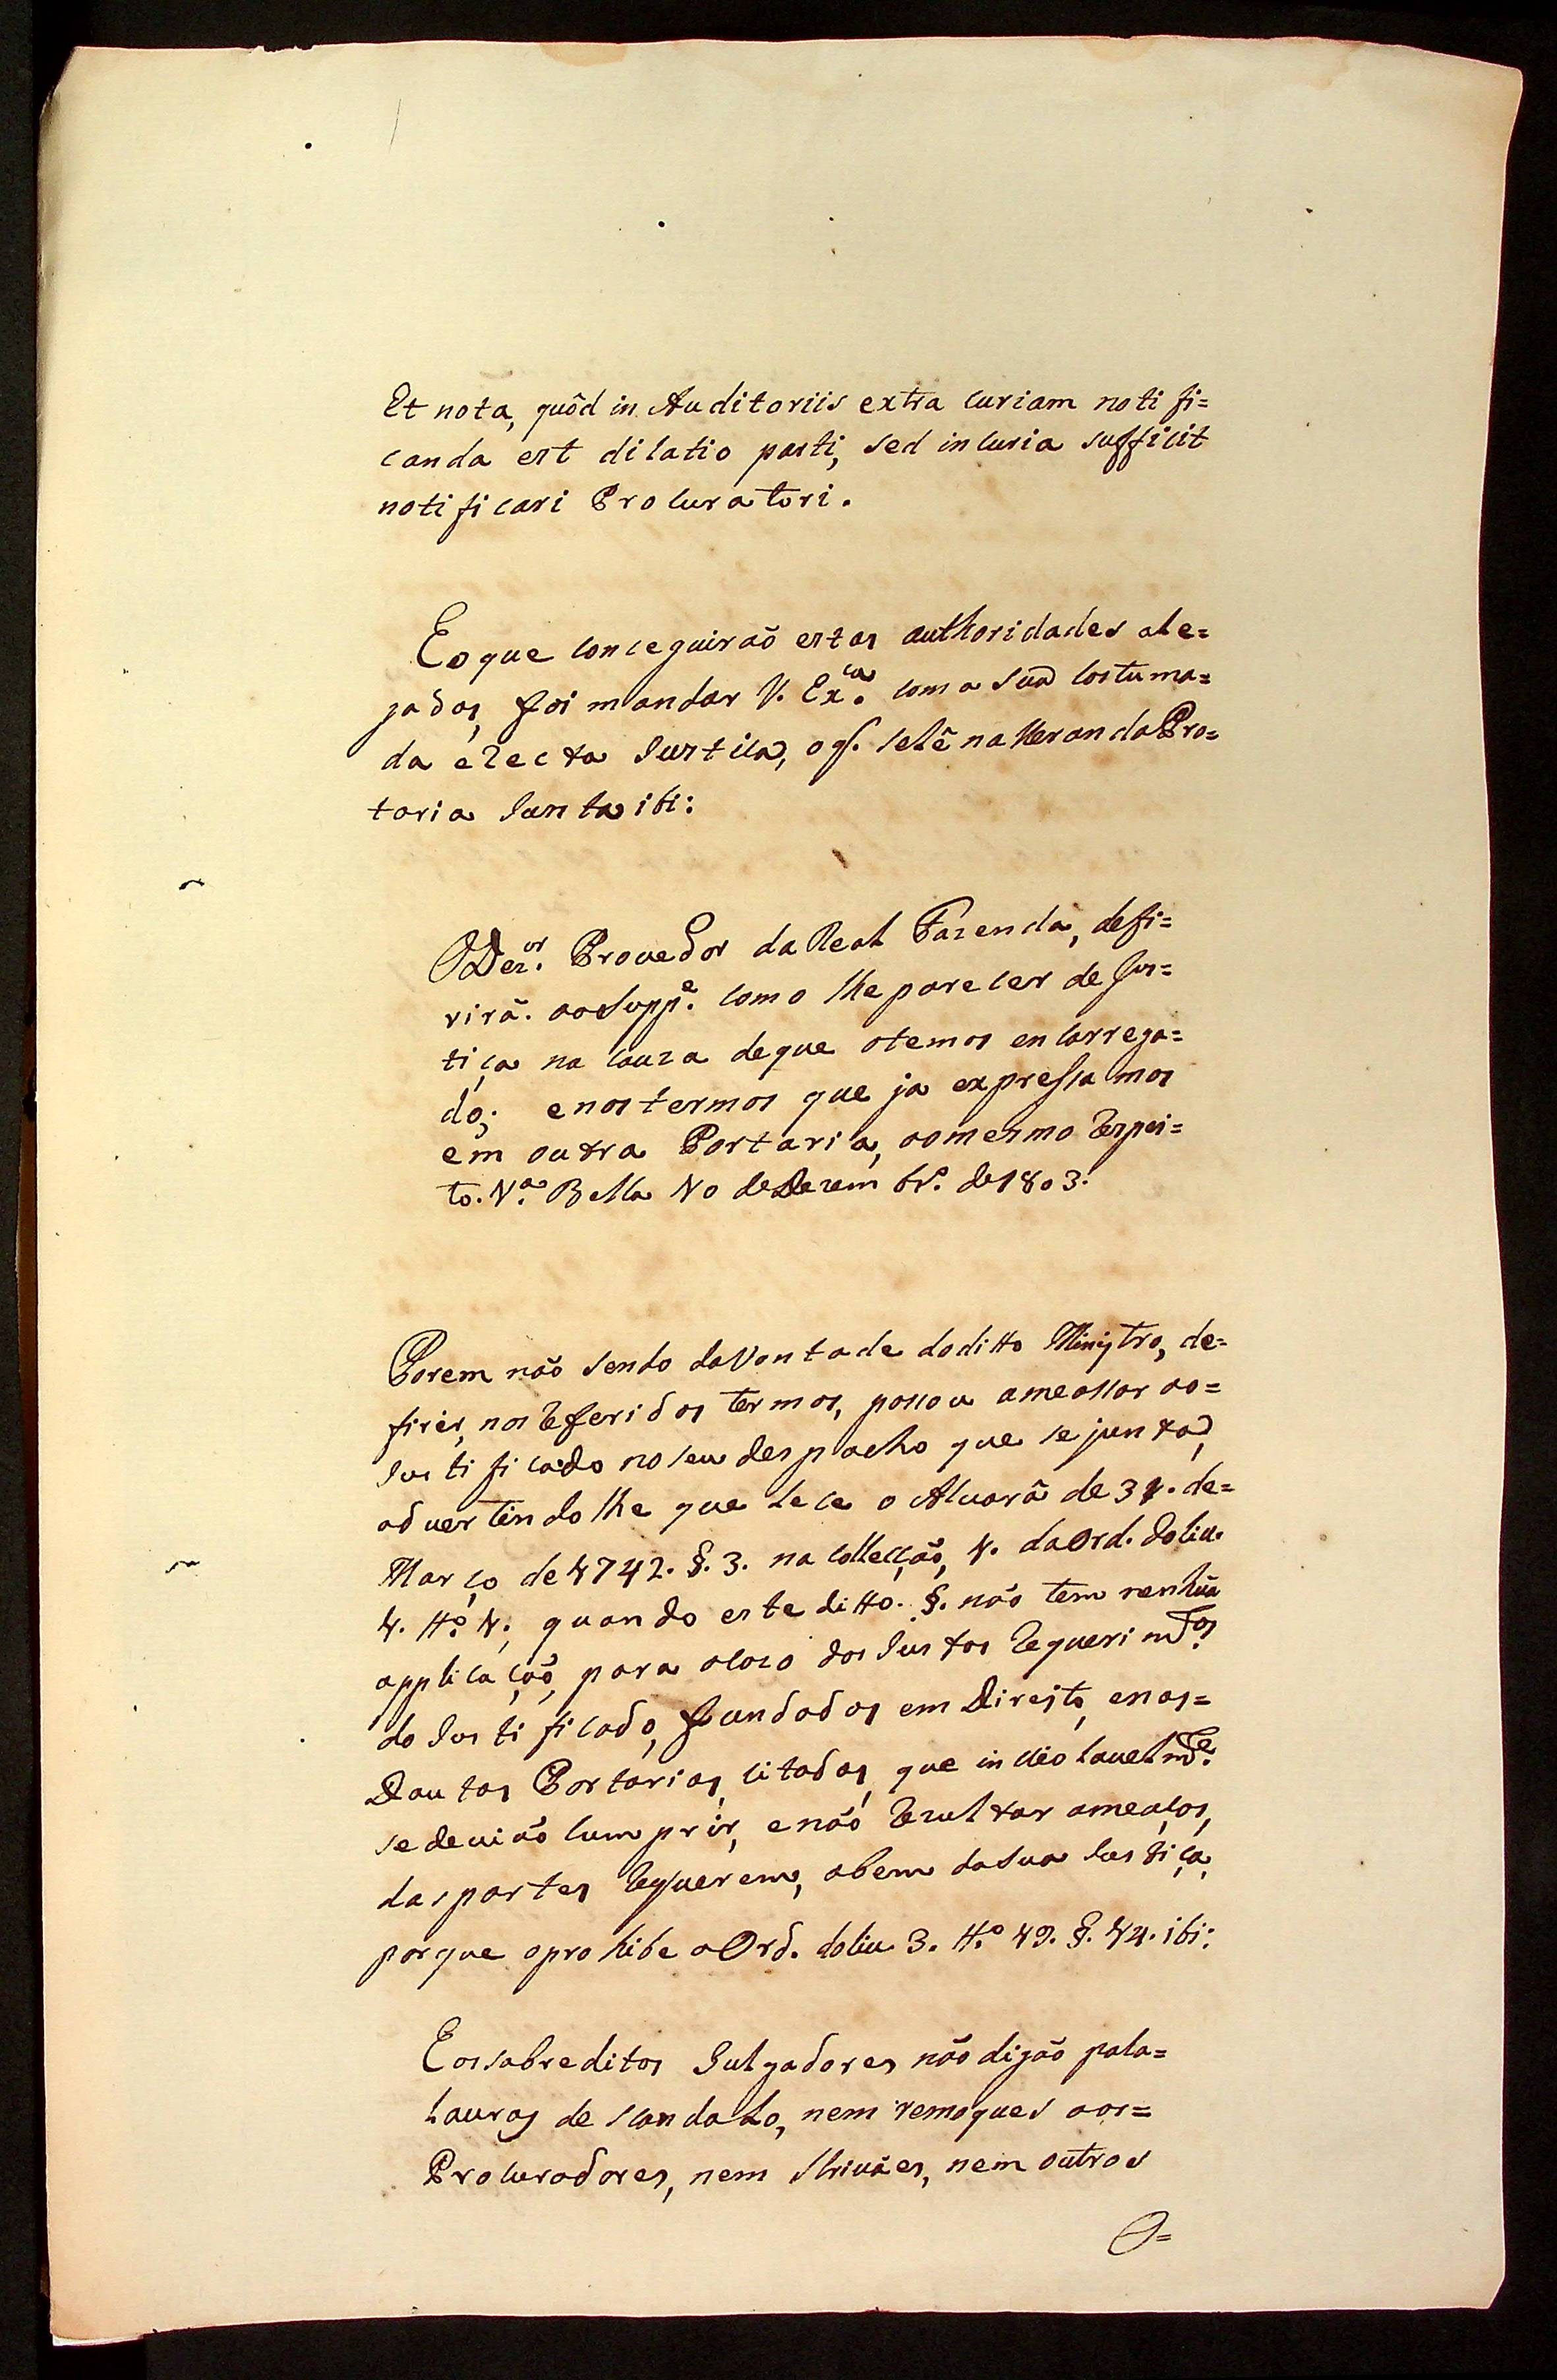 Et nota, quòd in Auditoriis extra curiam notifi=
canda est dilatio parti, sed in curia sufficit
notificari Procuratori.
E o que conceguiraõ estas authoridades ale=
gadas, foi mandar V. Ex.ca com a sua costuma=
da e recta Justica, o q̃. se lê na Veranda Por=
taria Junta ibi:
O Dez.or Provedor da Real Fazenda, defi=
rirá. ao Supp.e como lhe parecer de Jus=
tiça na cauza de que o temos encarrega=
do; e nos termos que ja expressamos
em outra Portaria, ao mesmo respei=
to. V.a Bella 10 de Dezembr.o de 1803.
Porem naõ sendo da Vontade do ditto Ministro, de=
firir, nos referidos termos, passou ameassar ao=
Justificado no seu despacho que se junta,
advertindo lhe que lece o Alvará de 31. de=
Março de 1742. §. 3. na collecçaõ, 1. da Ord. do liv.
1. tt.o 1., quando este ditto. §. naõ tem nenhũa
applicaçaõ, para o cazo dos Justos requerim.tos
do Justificado, fundados em Direito, e nas=
Doutas Portarias, citadas, que inviolavelm.te
se deviaõ cumprir, e naõ rezultar ameaços,
das partes requerem, abem da sua Justiça,
porque o prohibe a Ord. do liv. 3. tt.o 19. §. 14. ibi:
E os sobreditos Julgadores naõ digaõ pala=
lavras de scandalo, nem remoques aos=
Procuradores, nem Scrivães, nem outros
O=